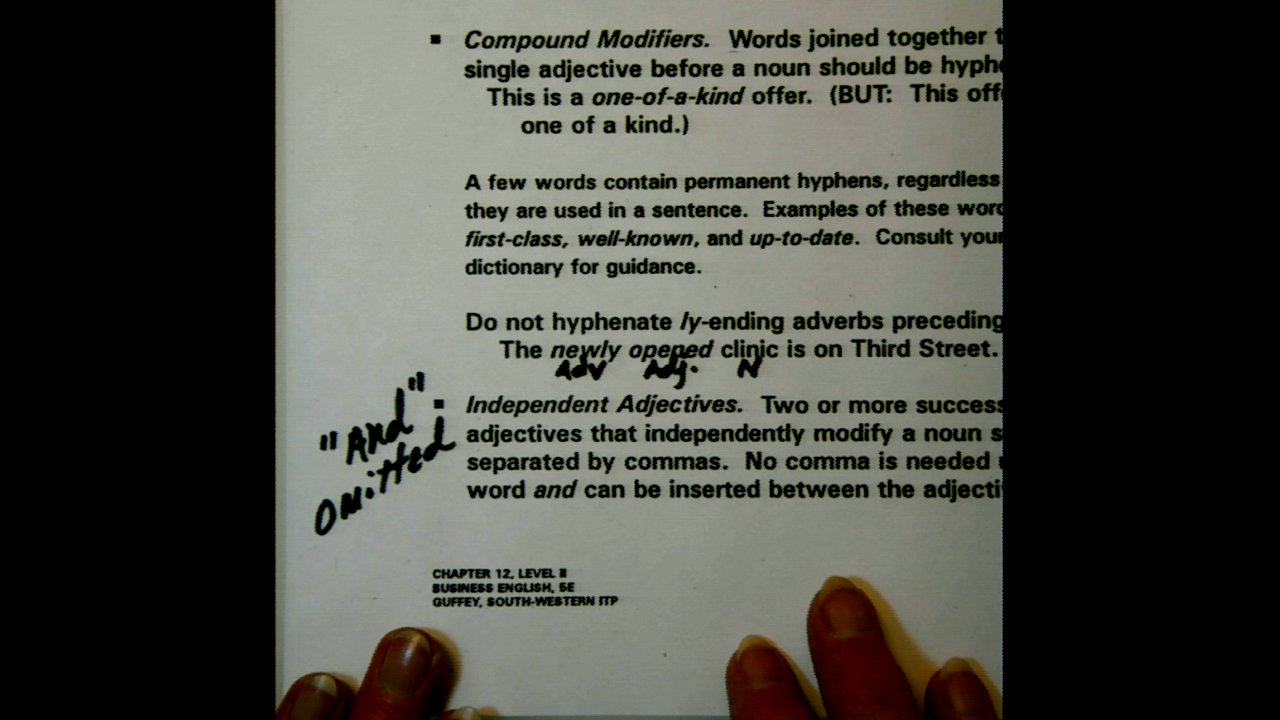 ▪ Compound Modifiers. Words joined together t
single adjective before a noun should be hyph
This is a one-of-a-kind offer. (BUT: This off
one of a kind.)
A few words contain permanent hyphens, regardless
they are used in a sentence. Examples of these word
first-class, well-known, and up-to-date. Consult your
dictionary for guidance.
Do not hyphenate ly-ending adverbs preceding
The newly opened clinic is on Third Street.
Adv Adj. N
"And"
omitted
▪ Independent Adjectives. Two or more success
adjectives that independently modify a noun s
separated by commas. No comma is needed
word and can be inserted between the adjecti
CHAPTER 12, LEVEL II
BUSINESS ENGLISH, 5E
GUFFEY, SOUTH-WESTERN ITP